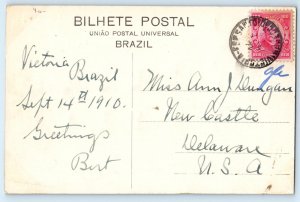 BILHETE POSTAL
UNIÃO POSTAL UNIVERSAL
BRAZIL
Victoria Brazil
Sept 14th 1910.
Greetings
Bert
Miss Ann J Duugan
New Castle
Delaware
U. S. A.